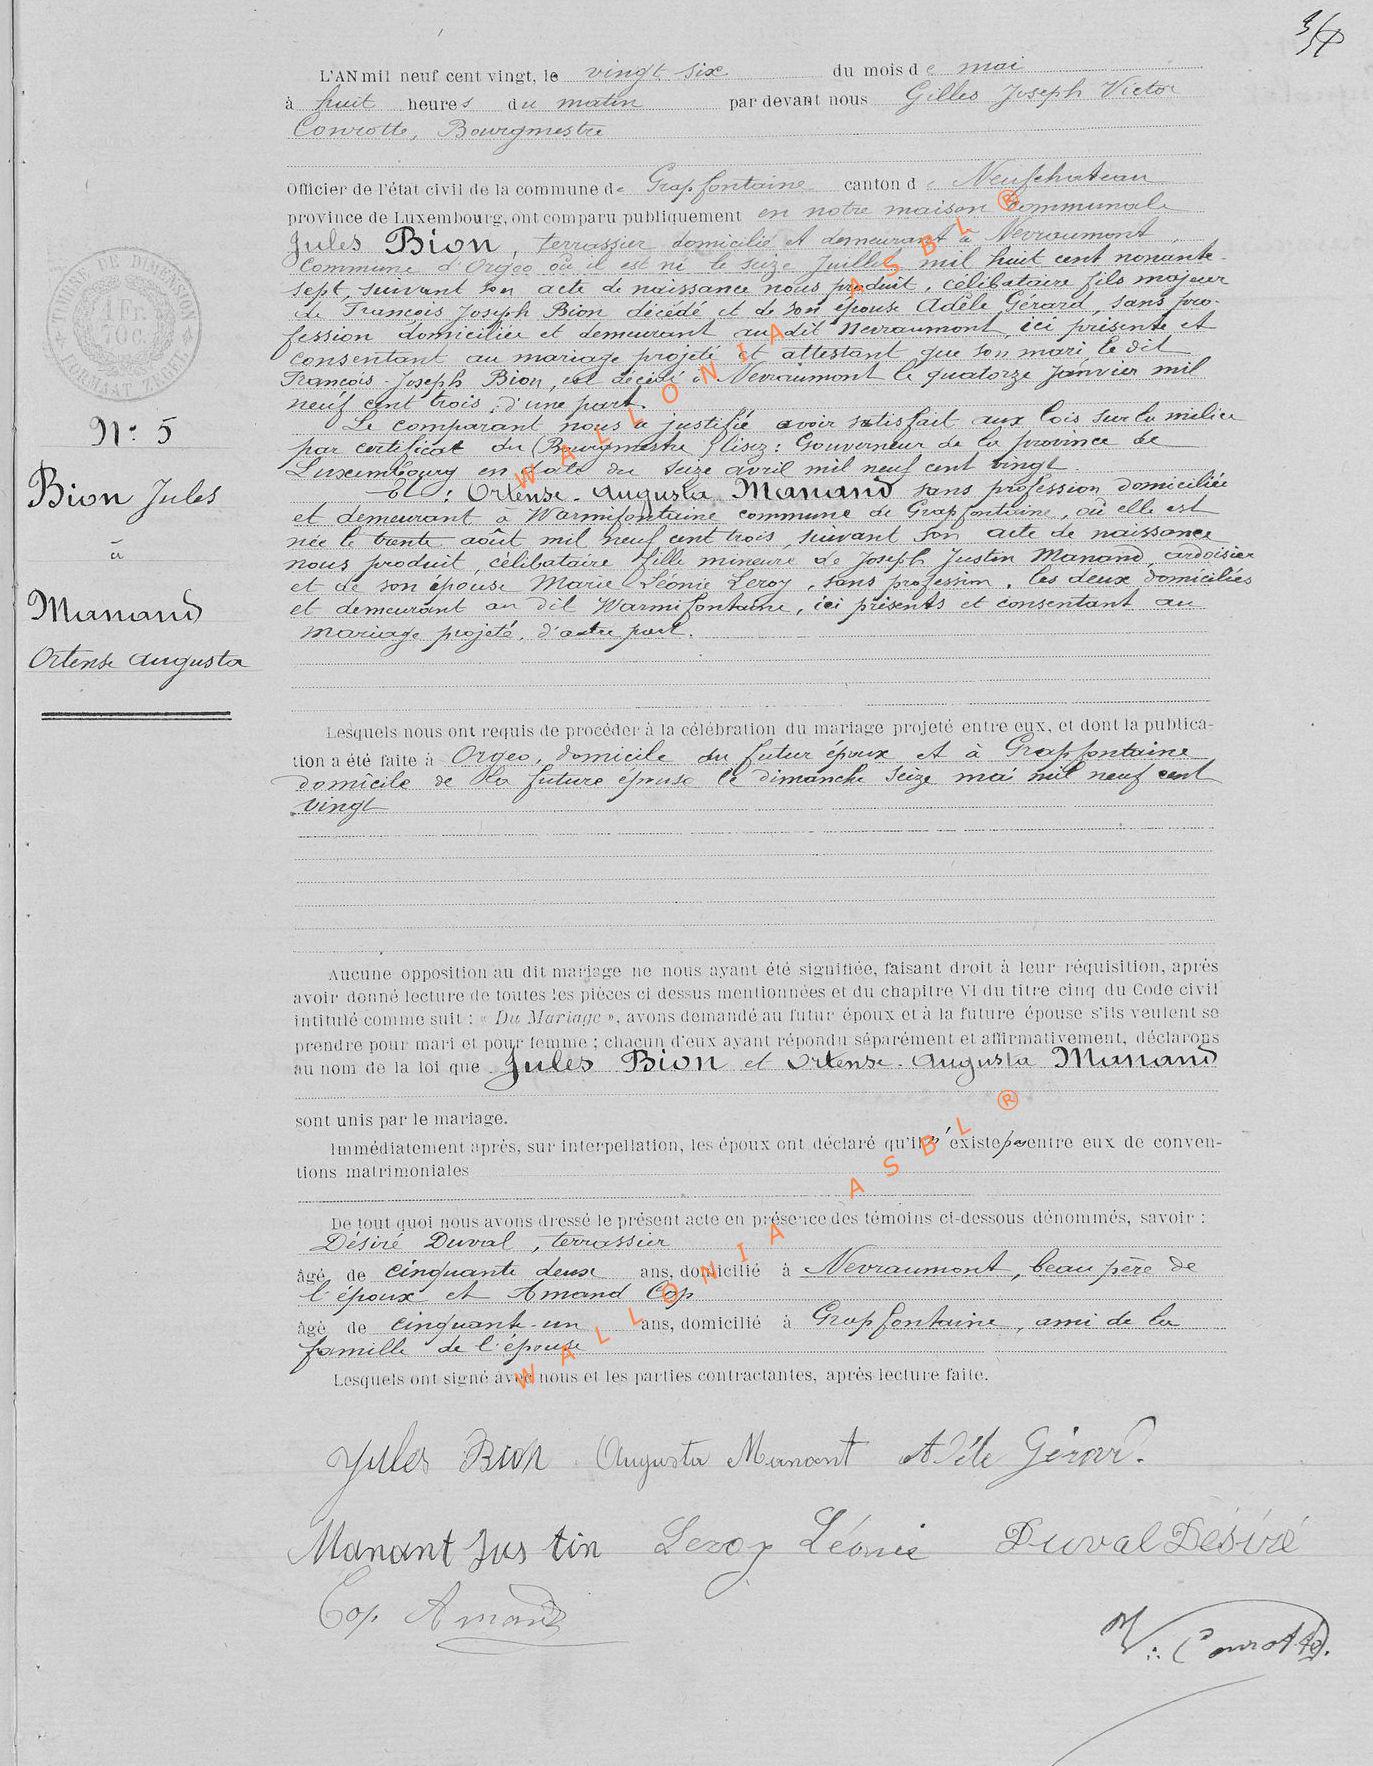 L'AN mil neuf cent vingt, le vingt six du mois de mai
à huit heures du matin par devant nous Gilles Joseph Victor
Conrotte, Bourgmestre
officier de l'état civil de la commune de Grapfontaine canton de Neufchateau
province de Luxembourg, ont comparu publiquement en notre maison communale
Jules Bion, terrassier domicilié et demeurant à Nevraumont,
commune d'Orgeo où il est né le seize Juillet mil huit cent nonante-
sept, suivant son acte de naissance nous produit, célibataire fils majeur
de Francois Joseph Bion décédé et de son épouse Adèle Gérard, sans pro-
fession domiciliée et demeurant au dit Nevraumont, ici présente et
consentant au mariage projeté et attestant que son mari, le dit
Francois-Joseph Bion, est décédé à Nevraumont le quatorze janvier mil
neuf cent trois, d'une part.
Le comparant nous a justifié avoir satisfait aux lois sur la milice
par certificat du Bourgmestre (lisez: Gouverneur de la province de
Luxembourg en date du seize avril mil neuf cent vingt
Et: Ortense-Augusta Manand sans profession domiciliée
et demeurant à Warmifontaine commune de Grapfontaine, où elle est
née le trente août mil neuf cent trois, suivant son acte de naissance
nous produit, célibataire fille mineure de Joseph Justin Manand, ardoisier
et de son épouse Marie Léonie Leroy, sans profession, les deux domiciliés
et demeurant au dit Warmifontaine, ici présents et consentant au
mariage projeté, d'autre part.
N: 5
Bion Jules
à
Manand
Ortense Augusta
Lesquels nous ont requis de procéder à la célébration du mariage projeté entre eux, et dont la publica-
tion a été faite à Orgeo, domicile du futur époux et à Grapfontaine
domicile de la future épouse le dimanche seize mai mil neuf cent
vingt
Aucune opposition au dit mariage ne nous ayant été signifiée, faisant droit à leur réquisition, après
avoir donné lecture de toutes les pièces ci dessus mentionnées et du chapitre VI du titre cinq du Code civil
intitulé comme suit : « Du Mariage », avons demandé au futur époux et à la future épouse s'ils veulent se
prendre pour mari et pour femme ; chacun d'eux ayant répondu séparément et affirmativement, déclarons
au nom de la loi que Jules Bion et Ortense-Augusta Manand
sont unis par le mariage.
Immédiatement après, sur interpellation, les époux ont déclaré qu'il n'existe pas entre eux de conven-
tions matrimoniales
De tout quoi nous avons dressé le présent acte en présence des témoins ci-dessous dénommés, savoir :
Désiré Duval, terrassier
âgé de cinquante deux ans, domicilié à Nevraumont, beau père de
l'époux et Amand Cop
âgé de cinquante-un ans, domicilié à Grapfontaine, ami de la
famille de l'épouse
Lesquels ont signé avec nous et les parties contractantes, après lecture faite.
Jules Bion Augusta Manant Adèle Gérard.
Manant Justin Leroy Léonie Duval Désiré
Cop Amand
V: Conrotte.
WALLONIA ASBL ®
WALLONIA ASBL ®